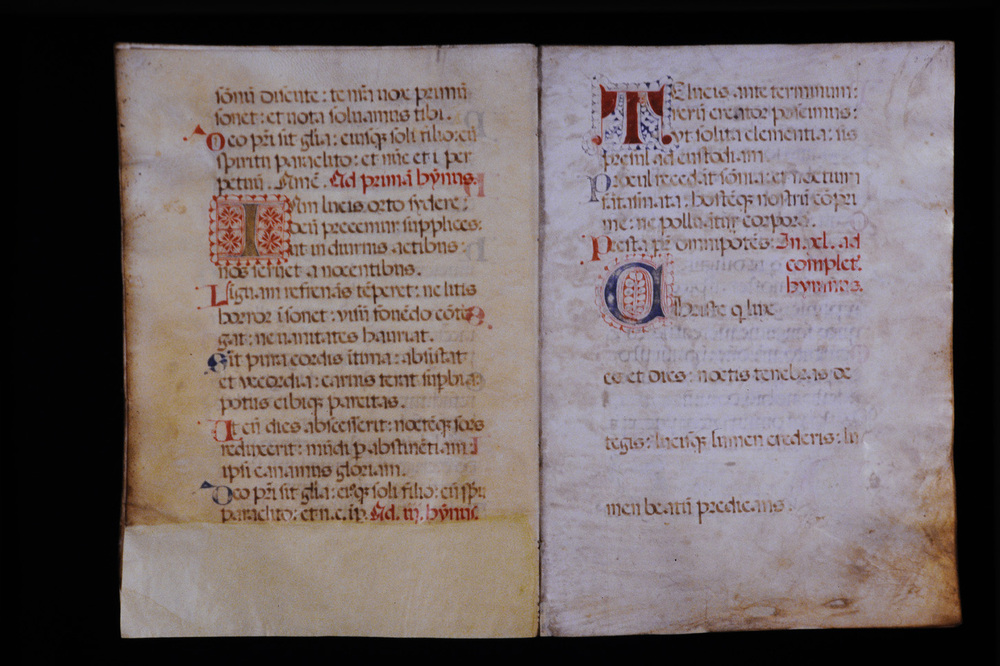 sōnū diſcute: te nr̄a vox primū
sonet: et vota solvamus tibi.
Deo pr̄i sit gl̄ia: eiusq̣ soli filio: cū
spiritu paraclito: et nūc et ī per
petuū. Amē. Ad primā hȳnus.
Iam lucis orto sydere:
deū precemur supplices:
ut in diurnis actibus:
nos servet a nocentibus.
Liguam refrenās tēperet: ne litis
horror īsonet: visū fovēdo cōte
gat: ne vanitates hauriat.
Sīt pura cordis ītima: absistat
et vecordia: carnis terat suꝑbiā
potus cibiq̣ parcitas.
Ut cū dies abscesserit: noctēq̣ sors
reduxerit: mūdi ꝑ abstinētiam
ipsi canamus gloriam.
Deo pr̄i sit gl̄ia: eiusq̣ soli filio: cū sp̄u
paraclito: et n. c. īp. Ad. iij. hȳnus
Te lucis ante terminum:
rerū creator poscimus:
ut solita clementia: sis
presul ad custodiam.
Procul recedāt sōnia: et noctium
fātasmata: hostēq̣ nostrū cōpri
me: ne polluātur corpora.
Presta pr̄ omnipotēs. In. xl. ad
complet.
hymnus.
Christe q̇ lux
es et dies: noctis tenebras de
tegis: lucisq̣ lumen crederis: lu
men beatū predicans.